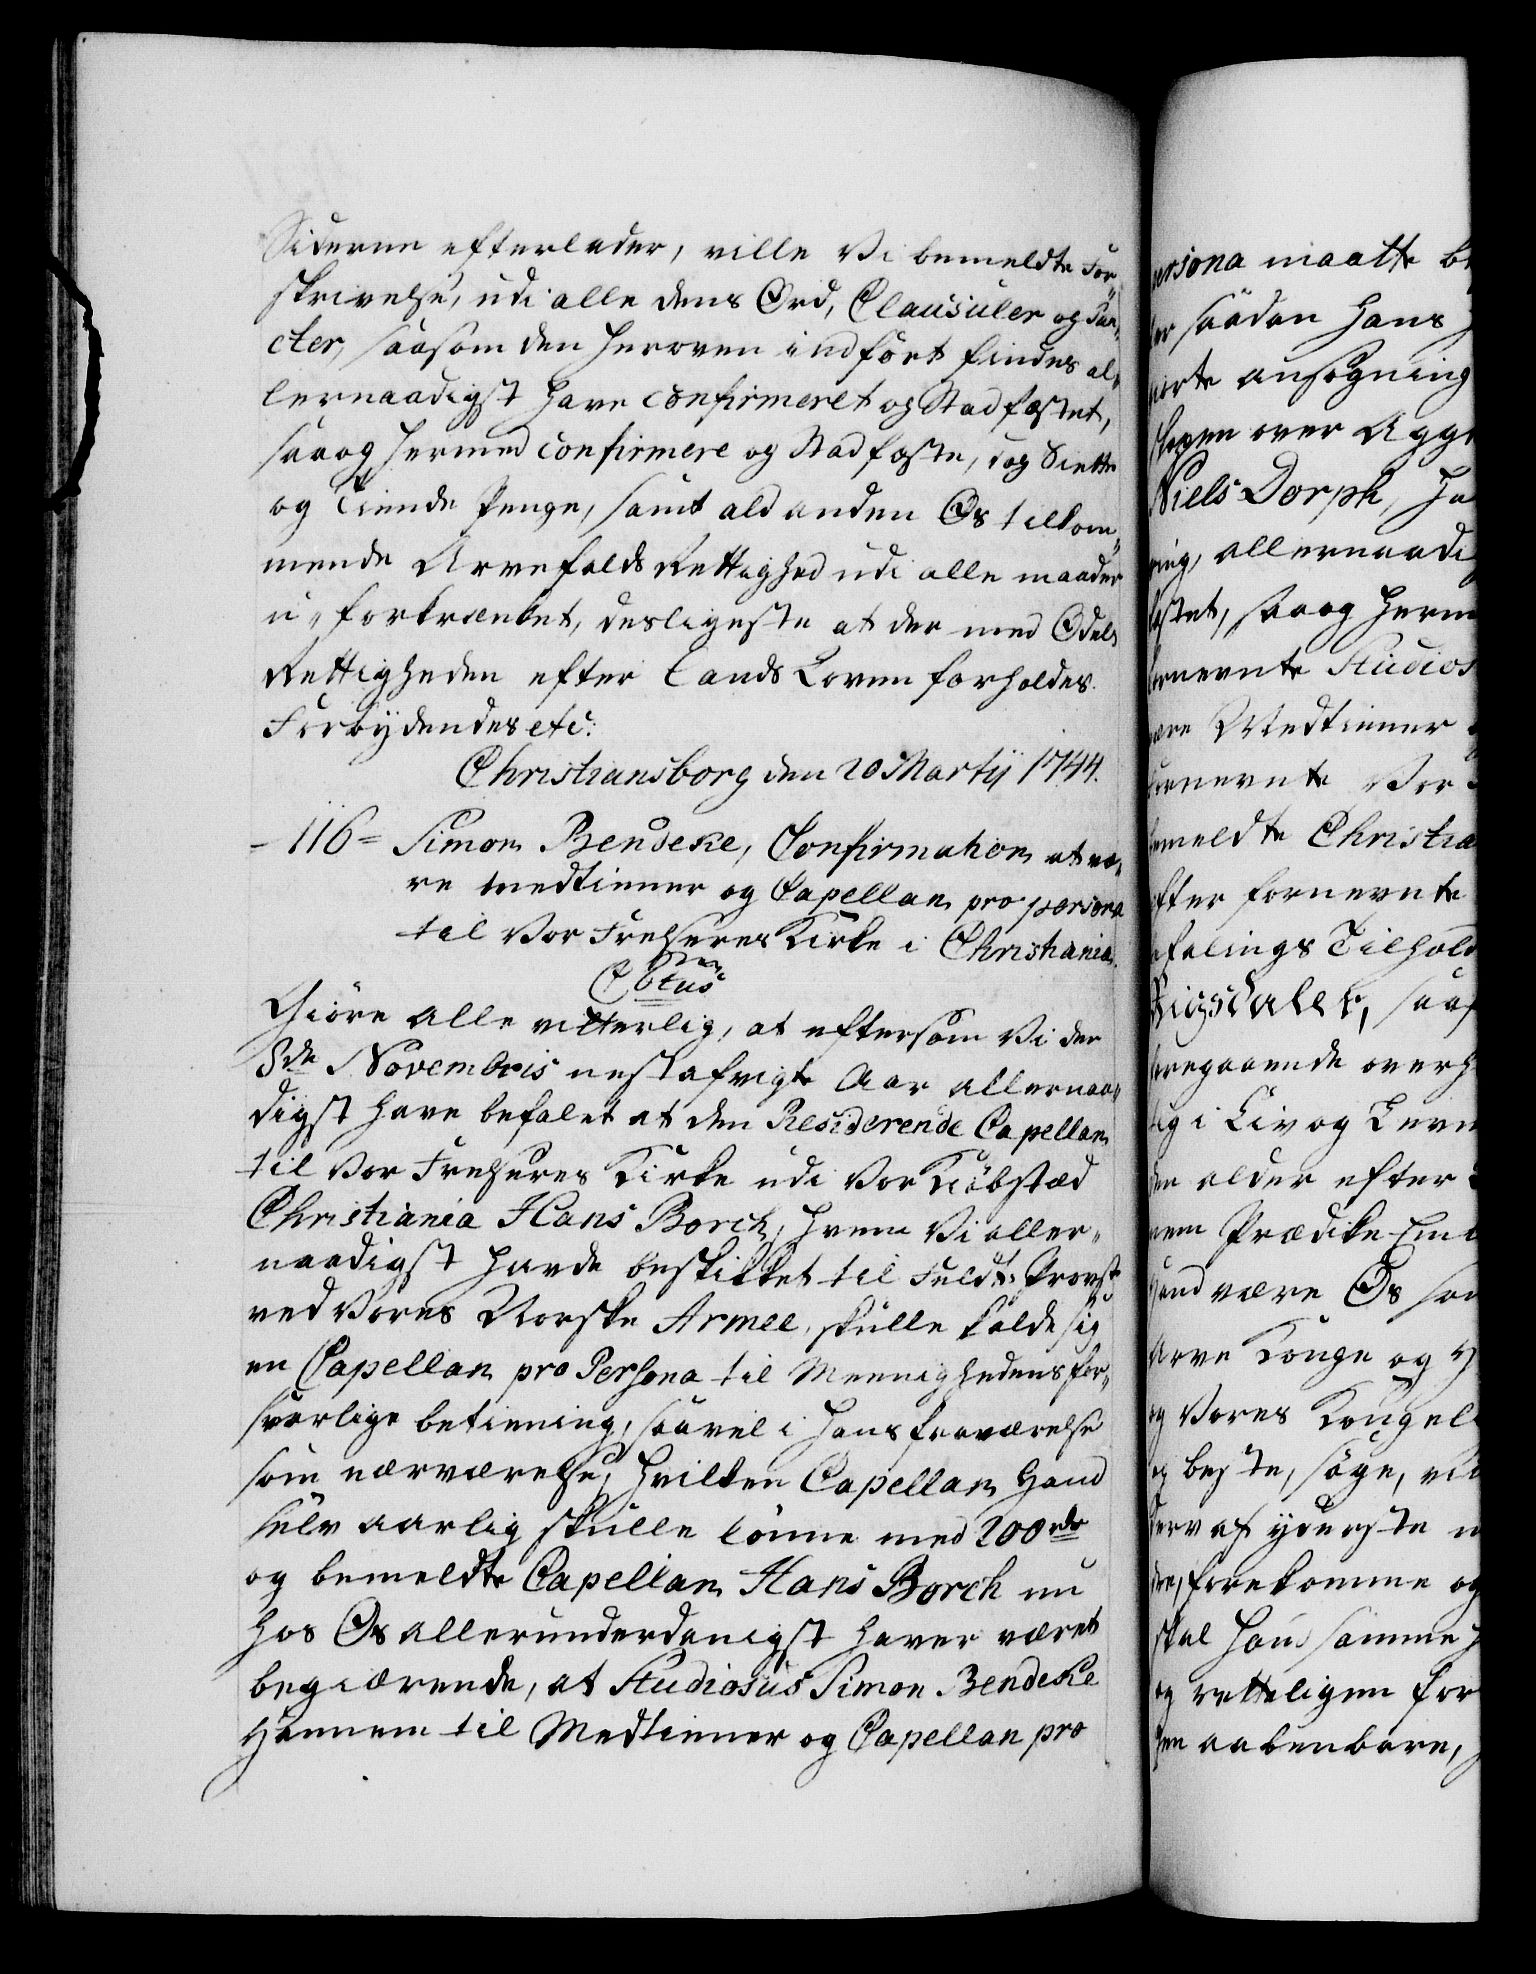 Siderne efterlader, ville Vi bemeldte For„
skrivelse, udi alle dens Ord, Clausuler og Pun„
cter, saasom den heroven indført findes al„
lernaadigst have confirmeret og Stadfæstet,
saa og hermed confirmere og Stadfæste, dog Siette
og Tiende Penge, samt ald anden Os tilkom„
mende Arvefalds Rettighed udi alle maader
u„forkrænket, desligeste at der med Odels
Rettigheden efter Lands Loven forholdes.
Forbydendes etc:
Christiansborg den 20 Martij 1744.
– 116 = Simon Bendeke, Confirmation at væ„
re Medtienner og Capellan pro persona
til Vor Frelseres Kirke i Christiania.
Giøre alle vitterlig, at eftersom Vi den
8de Novembris nestafvigte Aar allernaa„
digst have befalet at den Residerende Capellan
til Vor Frelseres Kirke udi Vor Kiøbstæd
Christiania Hans Borch, hvem Vi aller„
naadigst havde beskikket til Feldt-Provst
ved Vores Norske Armee, skulle kalde sig
en Capellan pro Persona til Meenighedens for„
svarlige betienning, saavel i hans fraværelse
som nærværelse, hvilken Capellan Hand
selv aarlig skulle lønne med 200 rdr
og bemeldte Capellan Hans Borch nu
hos Os allerunderdanigst haver været
begiærende, at Studiosus Simon Bendeke
Hannem til Medtienner og Capellan pro
persona maatte be
saadan hans
ansøgning
over Agge
Niels Dorph, ha
allernaadi
saa og herm
fornevnte Studios
være Medtienner
fornevnte Vor
bemeldte Christia
efter fornevnte
befalings Tilhold
Rigsdaler, saaf
foregaaende overh
i Liv og Levn
alder efter
Prædike-Em
Hand være Os som
Arve Konge og H
og Vores Kongel
og beste, søge, vid
derved af yderste
forekomme og
skal Hand samme
og retteligen for
aabenbare,